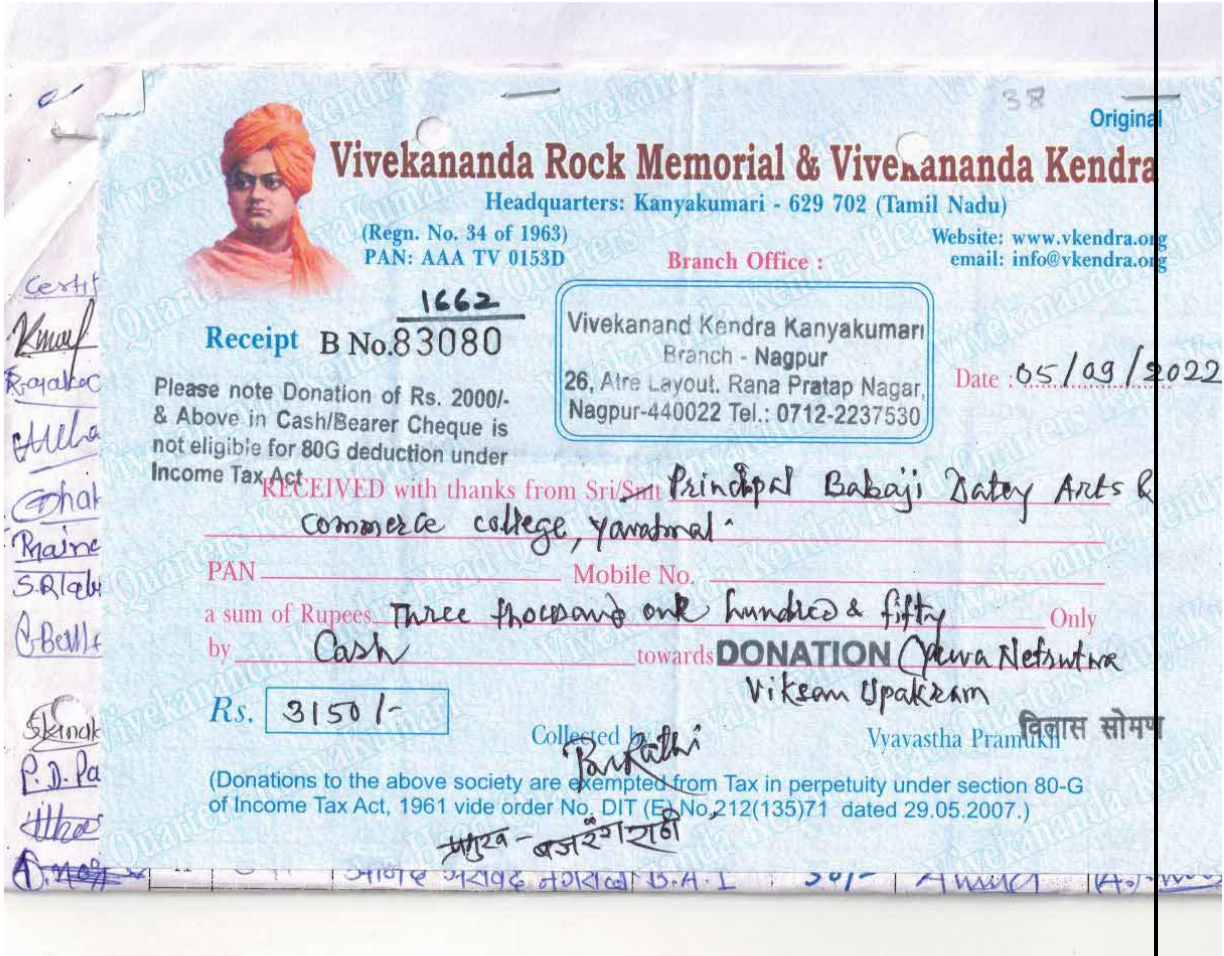 38
Original
Vivekananda Rock Memorial & Vivekananda Kendra
Headquarters: Kanyakumari - 629 702 (Tamil Nadu)
(Regn. No. 34 of 1963)
PAN: AAA TV 0153D
Website: www.vkendra.org
email: info@vkendra.org
Branch Office :
1662
Receipt B No.83080
Vivekanand Kendra Kanyakumari
Branch - Nagpur
26, Atre Layout. Rana Pratap Nagar,
Nagpur-440022 Tel.: 0712-2237530
Date : 05/09/2022
Please note Donation of Rs. 2000/-
& Above in Cash/Bearer Cheque is
not eligible for 80G deduction under
Income Tax Act
RECEIVED with thanks from Sri/Smt Principal Babaji Datey Arts &
commerce college, Yavatmal.
PAN Mobile No.
a sum of Rupees Three thousand one hundred & fifty Only
by Cash towards DONATION (Yuva Netrutva
Viksan Upakram
Rs. 3150/-
Collected by Vyavastha Pramukh विलास सोमण
(Donations to the above society are exempted from Tax in perpetuity under section 80-G
of Income Tax Act, 1961 vide order No. DIT (E) No,212(135)71 dated 29.05.2007.)
प्रमुख - बजरंग राठी
Certif
P. D. Pa
B.A.I 50/-